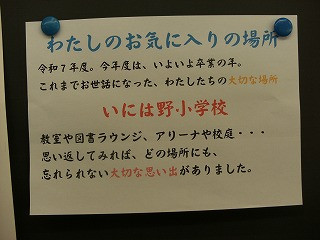 わたしのお気に入りの場所
令和７年度。今年度は、いよいよ卒業の年。
これまでお世話になった、わたしたちの大切な場所
いには野小学校
教室や図書ラウンジ、アリーナや校庭・・・
思い返してみれば、どの場所にも、
忘れられない大切な思い出がありました。